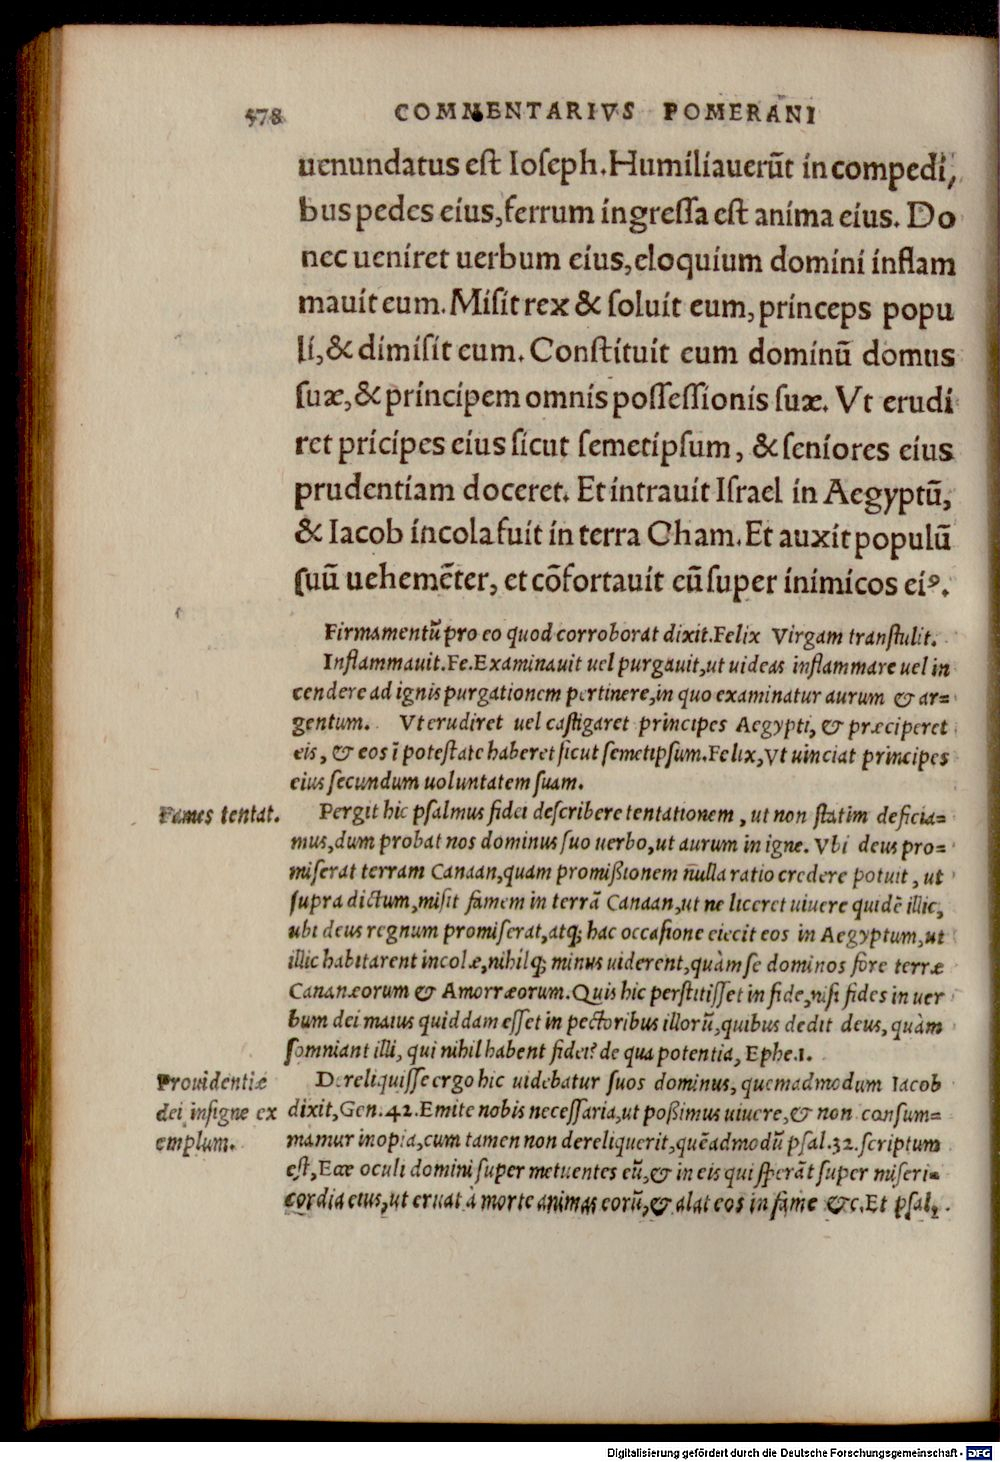 578 COMMENTARIVS POMERANI
uenundatus est Ioseph. Humiliauerũt in compedi,
bus pedes eius, ferrum ingressa est anima eius. Do
nec ueniret uerbum eius, eloquium domini inflam
mauit eum. Misit rex & soluit eum, princeps popu
li, & dimisit eum. Constituit eum dominũ domus
suæ, & principem omnis possessionis suæ. Vt erudi
ret pricipes eius sicut semetipsum, & seniores eius
prudentiam doceret. Et intrauit Israel in Aegyptũ,
& Iacob incola fuit in terra Cham. Et auxit populũ
suũ uehemẽter, et cõfortauit eũ super inimicos eiꝰ.
Firmamentũ pro eo quod corroborat dixit. Felix Virgam transtulit.
Inflammauit. Fe. Examinauit uel purgauit, ut uideas inflammare uel in
cendere ad ignis purgationem pertinere, in quo examinatur aurum & ar=
gentum. Vt erudiret uel castigaret principes Aegypti, & præciperet
eis, & eos ĩ potestate haberet sicut semetipsum. Felix, Vt uinciat principes
eius secundum uoluntatem suam.
Fames tentat. Pergit hic psalmus fidei describere tentationem, ut non statim deficia=
mus, dum probat nos dominus suo uerbo, ut aurum in igne. Vbi deus pro=
miserat terram Canaan, quam promißionem nulla ratio credere potuit, ut
supra dictum, misit famem in terrã Canaan, ut ne liceret uiuere quidẽ illic,
ubi deus regnum promiserat, atq; hac occasione eiecit eos in Aegyptum, ut
illic habitarent incolæ, nihilq; minus uiderent, quàm se dominos fore terræ
Cananæorum & Amorræorum. Quis hic perstitisset in fide, nisi fides in uer
bum dei maius quiddam esset in pectoribus illorũ, quibus dedit deus, quàm
somniant illi, qui nihil habent fidei? de qua potentia, Ephe.1.
Prouidentiæ Dereliquisse ergo hic uidebatur suos dominus, quemadmodum Iacob
dei insigne ex dixit, Gen. 42. Emite nobis necessaria, ut poßimus uiuere, & non consum=
emplum. mamur inopia, cum tamen non dereliquerit, quẽadmodũ psal. 32. scriptum
est, Ecce oculi domini super metuentes eũ, & in eis qui sperãt super miseri=
cordia eius, ut eruat à morte animas eorũ, & alat eos in fame &c. Et psal.
Digitalisierung gefördert durch die Deutsche Forschungsgemeinschaft - DFG